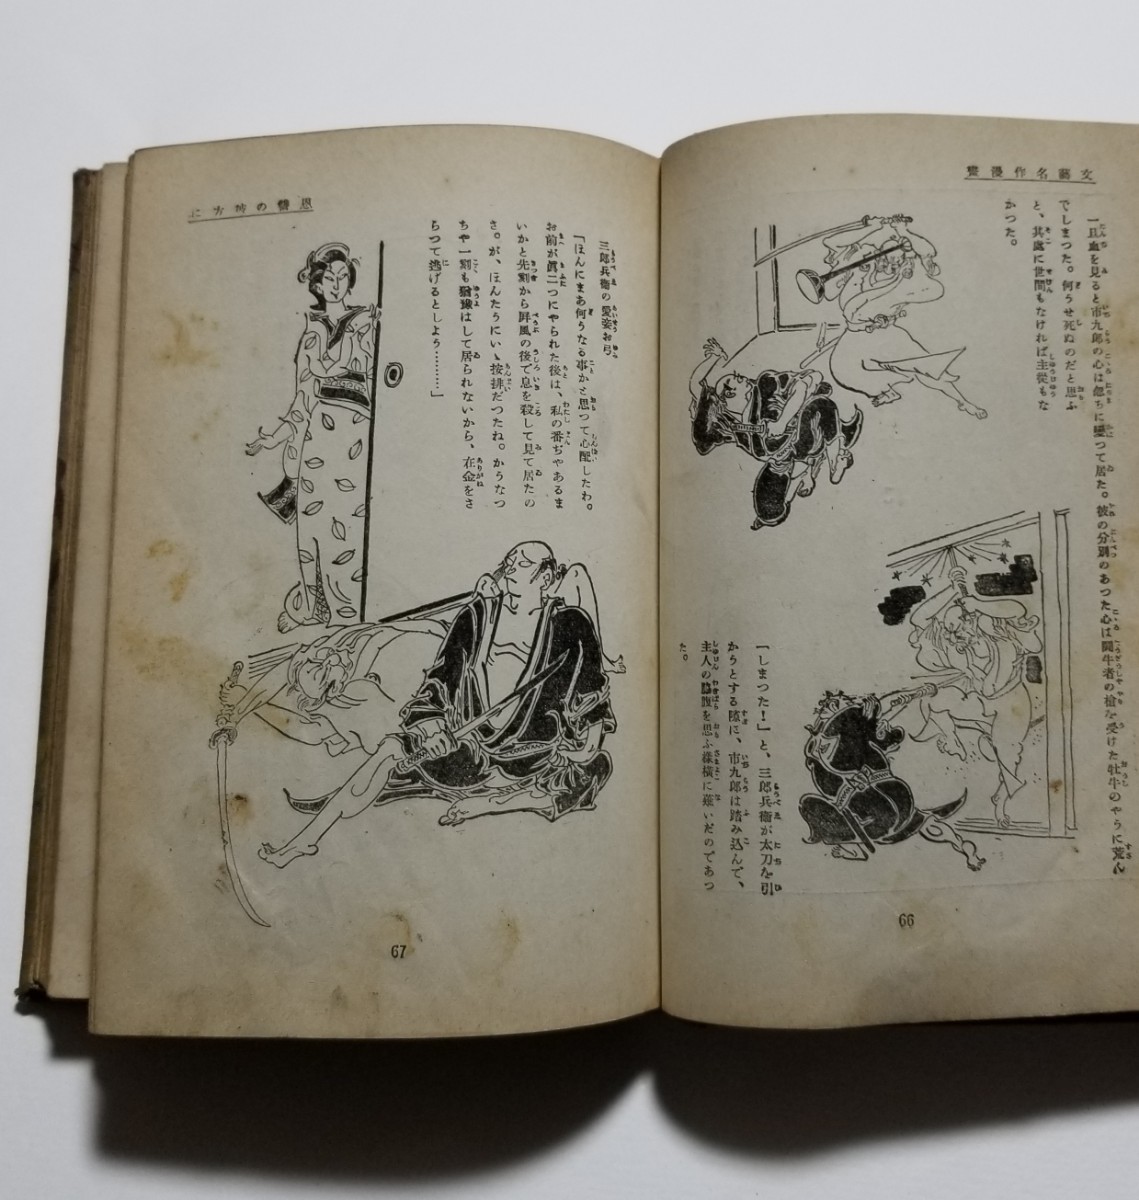 文藝名作漫畫
一旦血を見ると市九郎の心は忽ちに變つて居た。彼の分別のあつた心は鬪牛者の槍を受けた牡牛のやうに荒ん
でしまつた。何うせ死ぬのだと思ふ
と、其處に世間もなければ主從もな
かつた。
「しまつた！」と、三郎兵衞が太刀を引
かうとする隙に、市九郎は踏み込んで、
主人の脇腹を思ふ樣橫に薙いだのであつ
た。
66
恩讐の彼方に
三郎兵衞の愛妾お弓
「ほんにまあ何うなる事かと思つて心配したわ。
お前が眞二つにやられた後は、私の番ぢやあるま
いかと先刻から屏風の後で息を殺して見て居たの
さ。が、ほんたうにいゝ按排だつたね。かうなつ
ちや一刻も猶豫はして居られないから、在金をさ
らつて逃げるとしよう………」
67